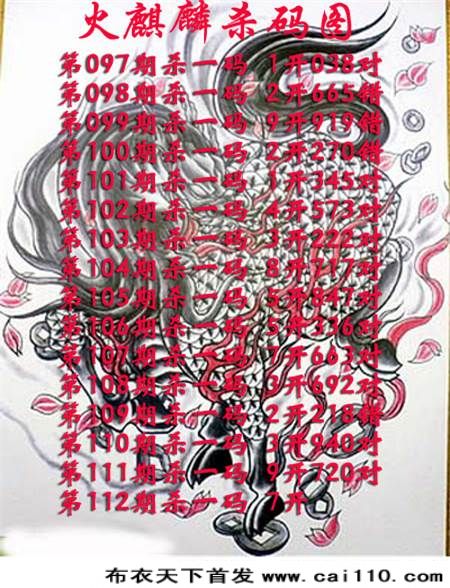 火麒麟杀码图
第097期杀一码 1开038对
第098期杀一码 2开665错
第099期杀一码 9开919错
第100期杀一码 2开270错
第101期杀一码 1开345对
第102期杀一码 4开573对
第103期杀一码 3开222对
第104期杀一码 8开717对
第105期杀一码 5开847对
第106期杀一码 5开336对
第107期杀一码 7开663对
第108期杀一码 3开692对
第109期杀一码 2开218错
第110期杀一码 3开940对
第111期杀一码 9开720对
第112期杀一码 7开
布衣天下首发 www.cai110.com